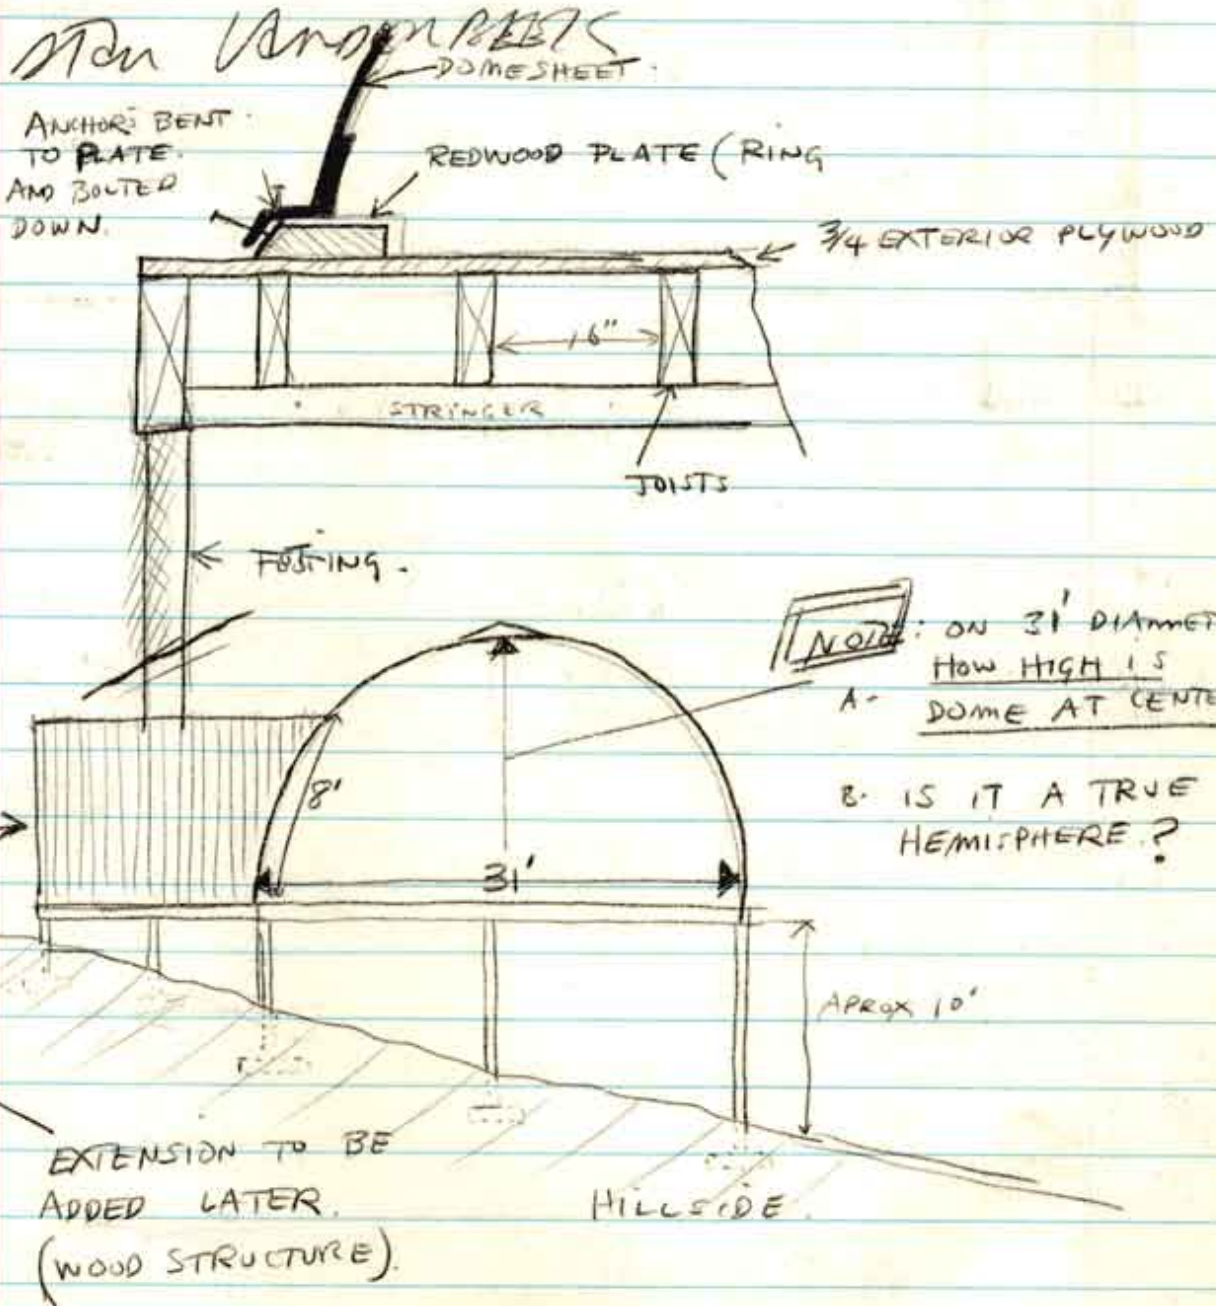 Stan VanDerBeek
DOMESHEET.
ANCHORS BENT
TO PLATE.
AND BOLTED
DOWN.
REDWOOD PLATE (RING
3/4 EXTERIOR PLYWOOD
16"
STRINGER
JOISTS
FOOTING.
NOTE: ON 31' DIAMET
HOW HIGH IS
A- DOME AT CENTE
8'
B. IS IT A TRUE
HEMISPHERE.?
31'
APROX 10'
EXTENSION TO BE
ADDED LATER.
(WOOD STRUCTURE).
HILLSIDE.